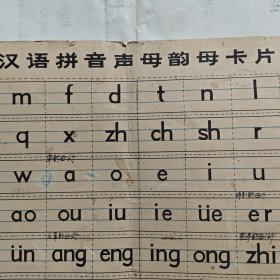 汉语拼音声母韵母卡片
m f d t n l
q x zh ch sh r
w a o e i u
ao ou iu ie üe er
ün ang eng ing ong zhi